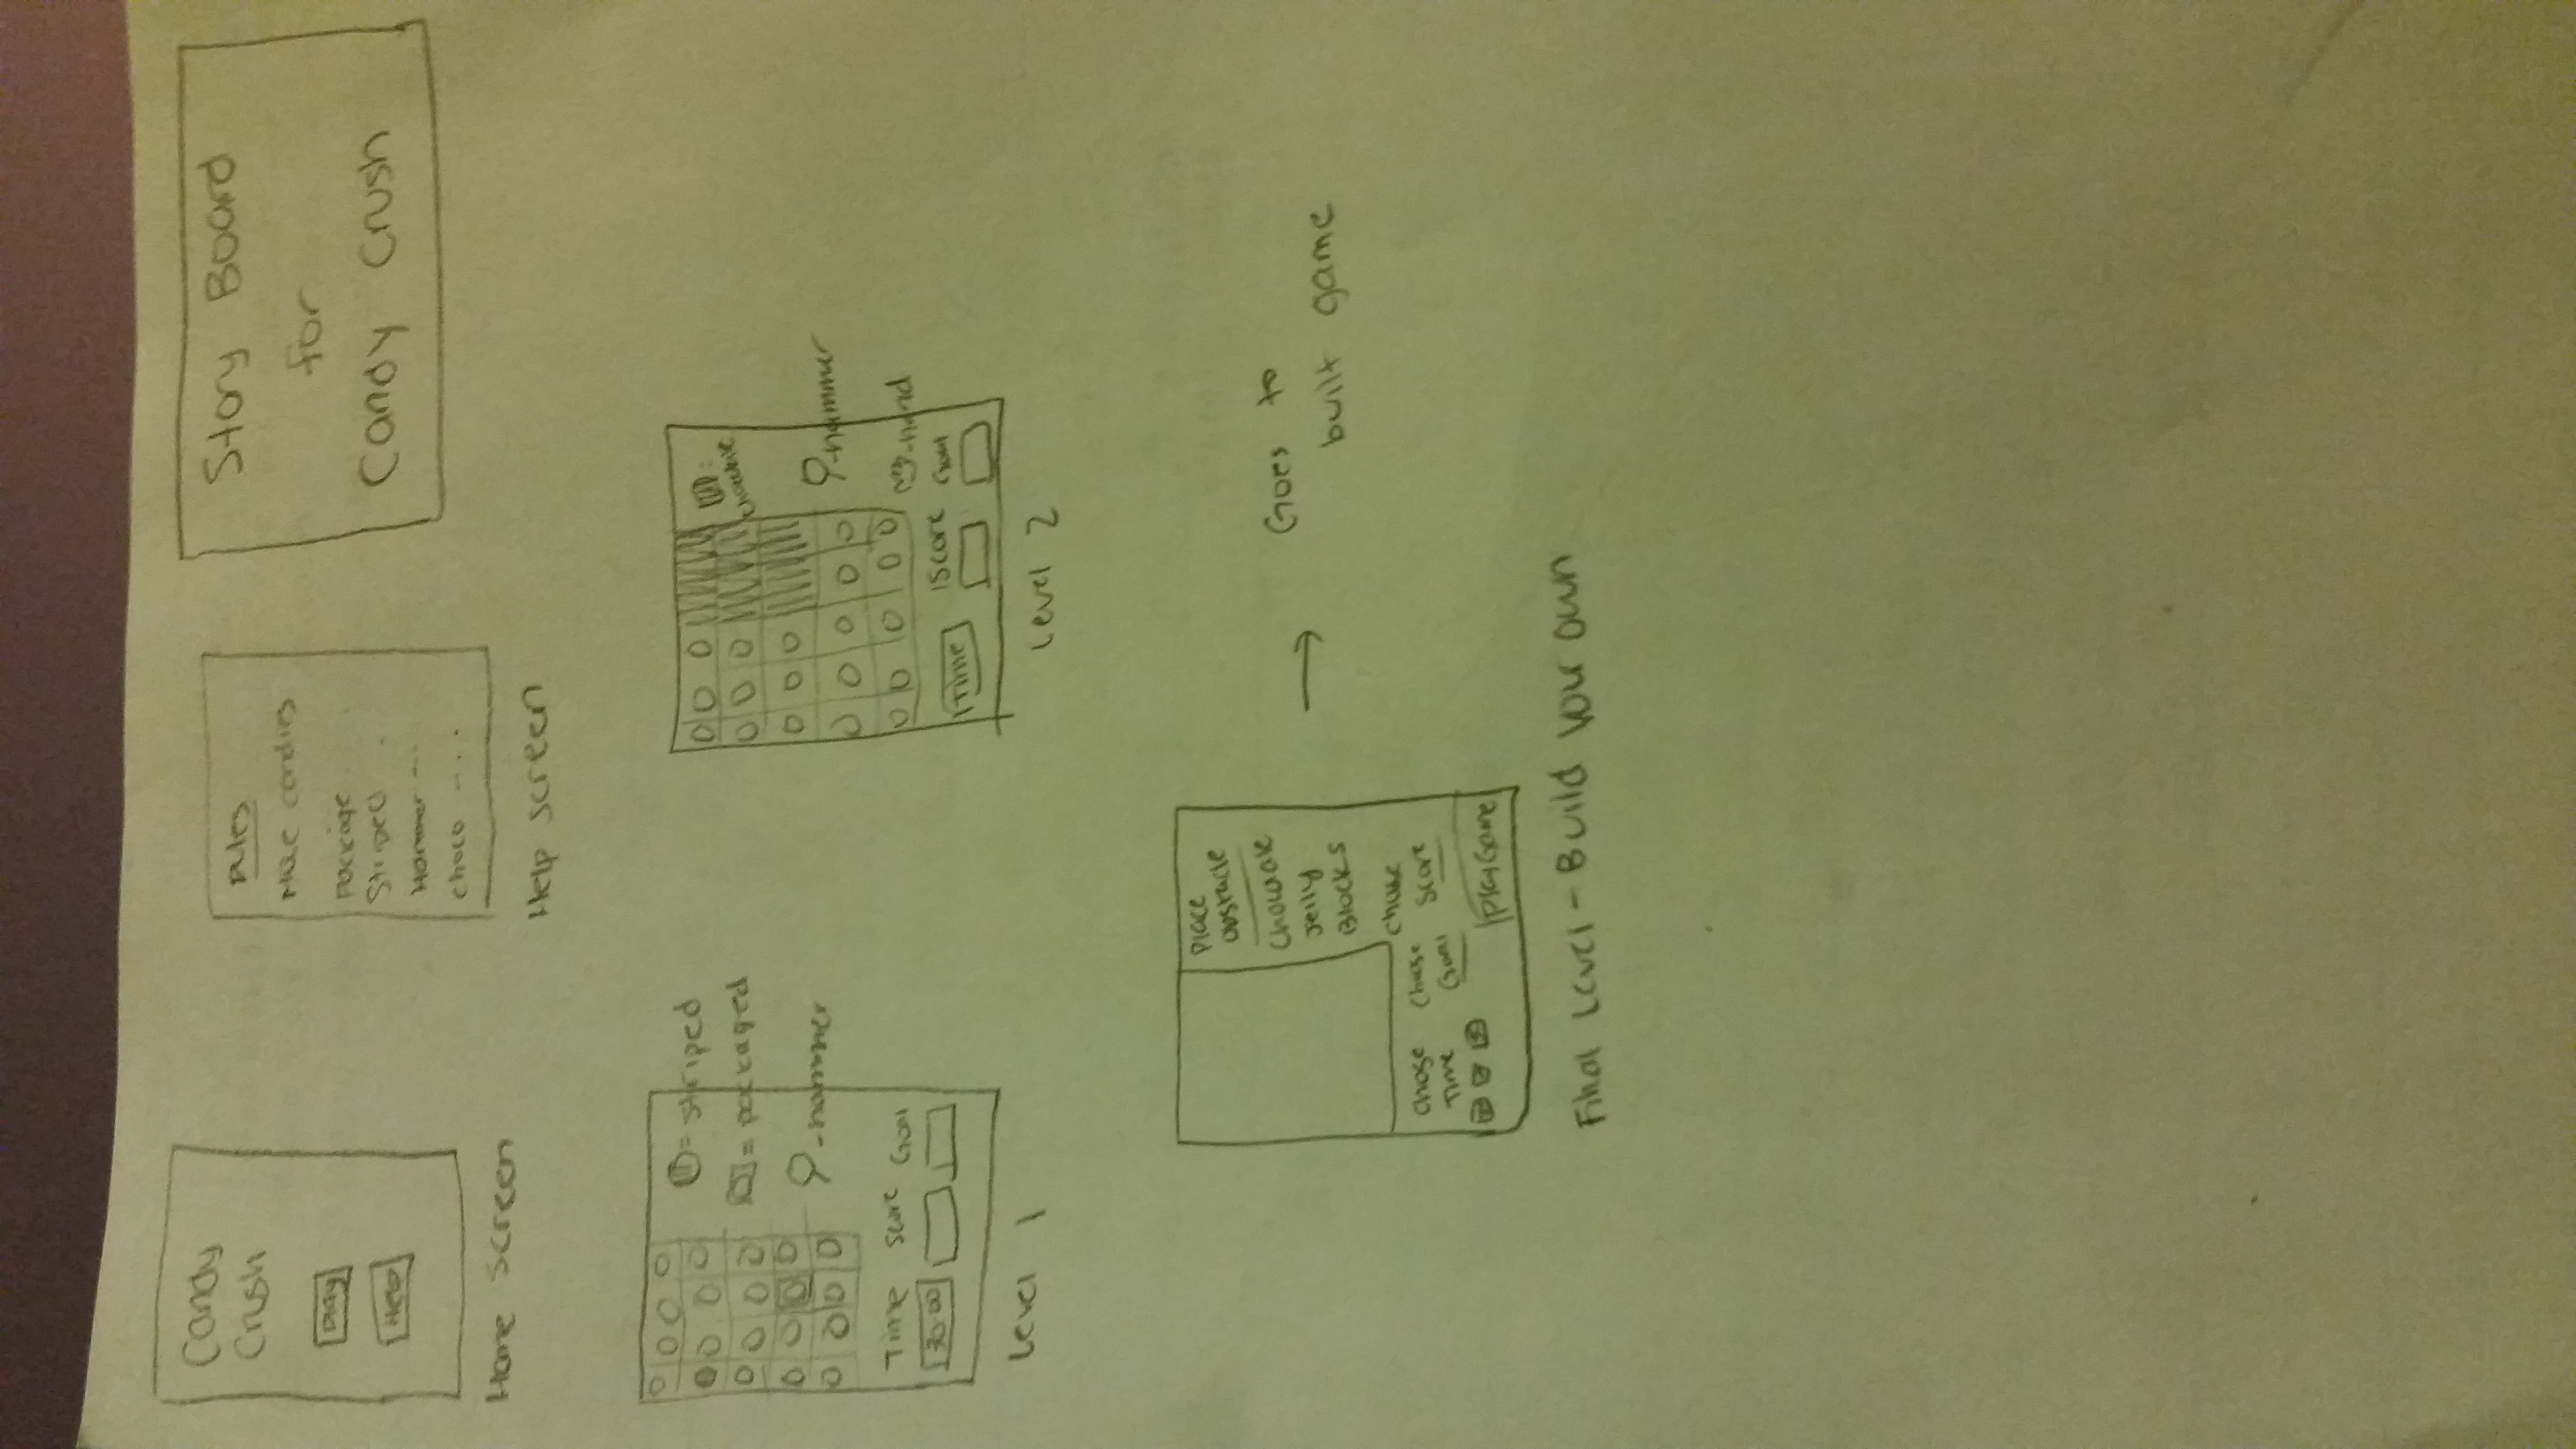 Candy
Crush
Play
Help
Home Screen
Rules
candies
Package
Striped
Hammer ---
choco -...
Help screen
Story Board
for
Candy Crush
= striped
= packaged
-hammer
Time Score Goal
30:00
Level 1
chocolate
-hammer
-hand
Time Score Goal
Level 2
Place
obstacle
Chocolate
Jelly
Blocks
Chose
Time
Choose
Goal
Score
Play Game
Goes to
built game
Final Level - Build Your Own